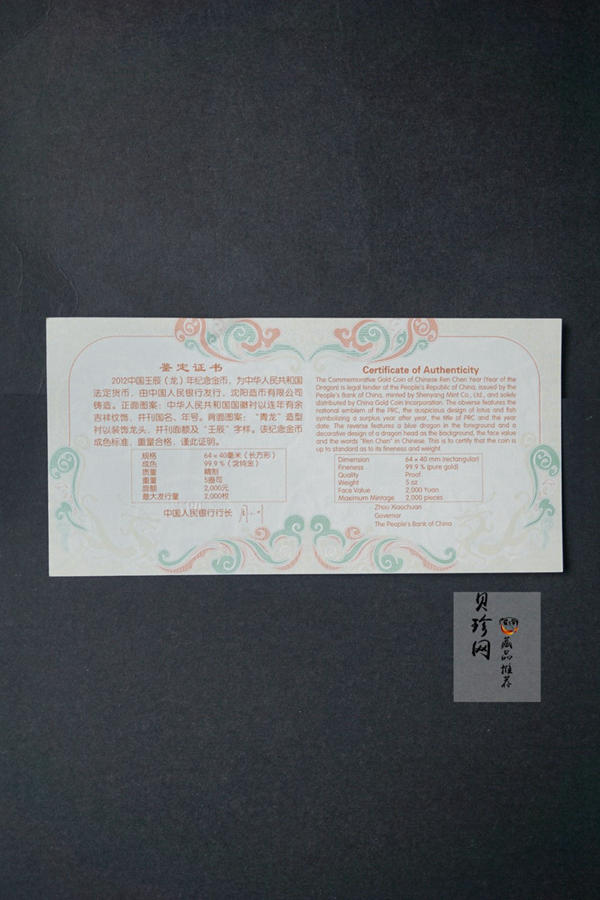 鉴定证书
2012中国壬辰（龙）年纪念金币，为中华人民共和国
法定货币，由中国人民银行发行，沈阳造币有限公司
铸造。正面图案：中华人民共和国国徽衬以连年有余
吉祥纹饰，并刊国名、年号。背面图案：“青龙”造型
衬以装饰龙头，并刊面额及“壬辰”字样。该纪念金币
成色标准，重量合格，谨此证明。
规格 64×40毫米（长方形）
成色 99.9%（含纯金）
质量 精制
重量 5盎司
面额 2,000元
最大发行量 2,000枚
中国人民银行行长
Certificate of Authenticity
The Commemorative Gold Coin of Chinese Ren Chen Year (Year of the
Dragon) is legal tender of the People's Republic of China, issued by the
People's Bank of China, minted by Shenyang Mint Co., Ltd., and solely
distributed by China Gold Coin Incorporation. The obverse features the
national emblem of the PRC, the auspicious design of lotus and fish
symbolizing a surplus year after year, the title of PRC and the year
date. The reverse features a blue dragon in the foreground and a
decorative design of a dragon head as the background, the face value
and the words "Ren Chen" in Chinese. This is to certify that the coin is
up to standard as to its fineness and weight.
Dimension 64×40 mm (rectangular)
Fineness 99.9 % (pure gold)
Quality Proof
Weight 5 oz
Face Value 2,000 Yuan
Maximum Mintage 2,000 pieces
Zhou Xiaochuan
Governor
The People's Bank of China
贝珍网
藏品推荐